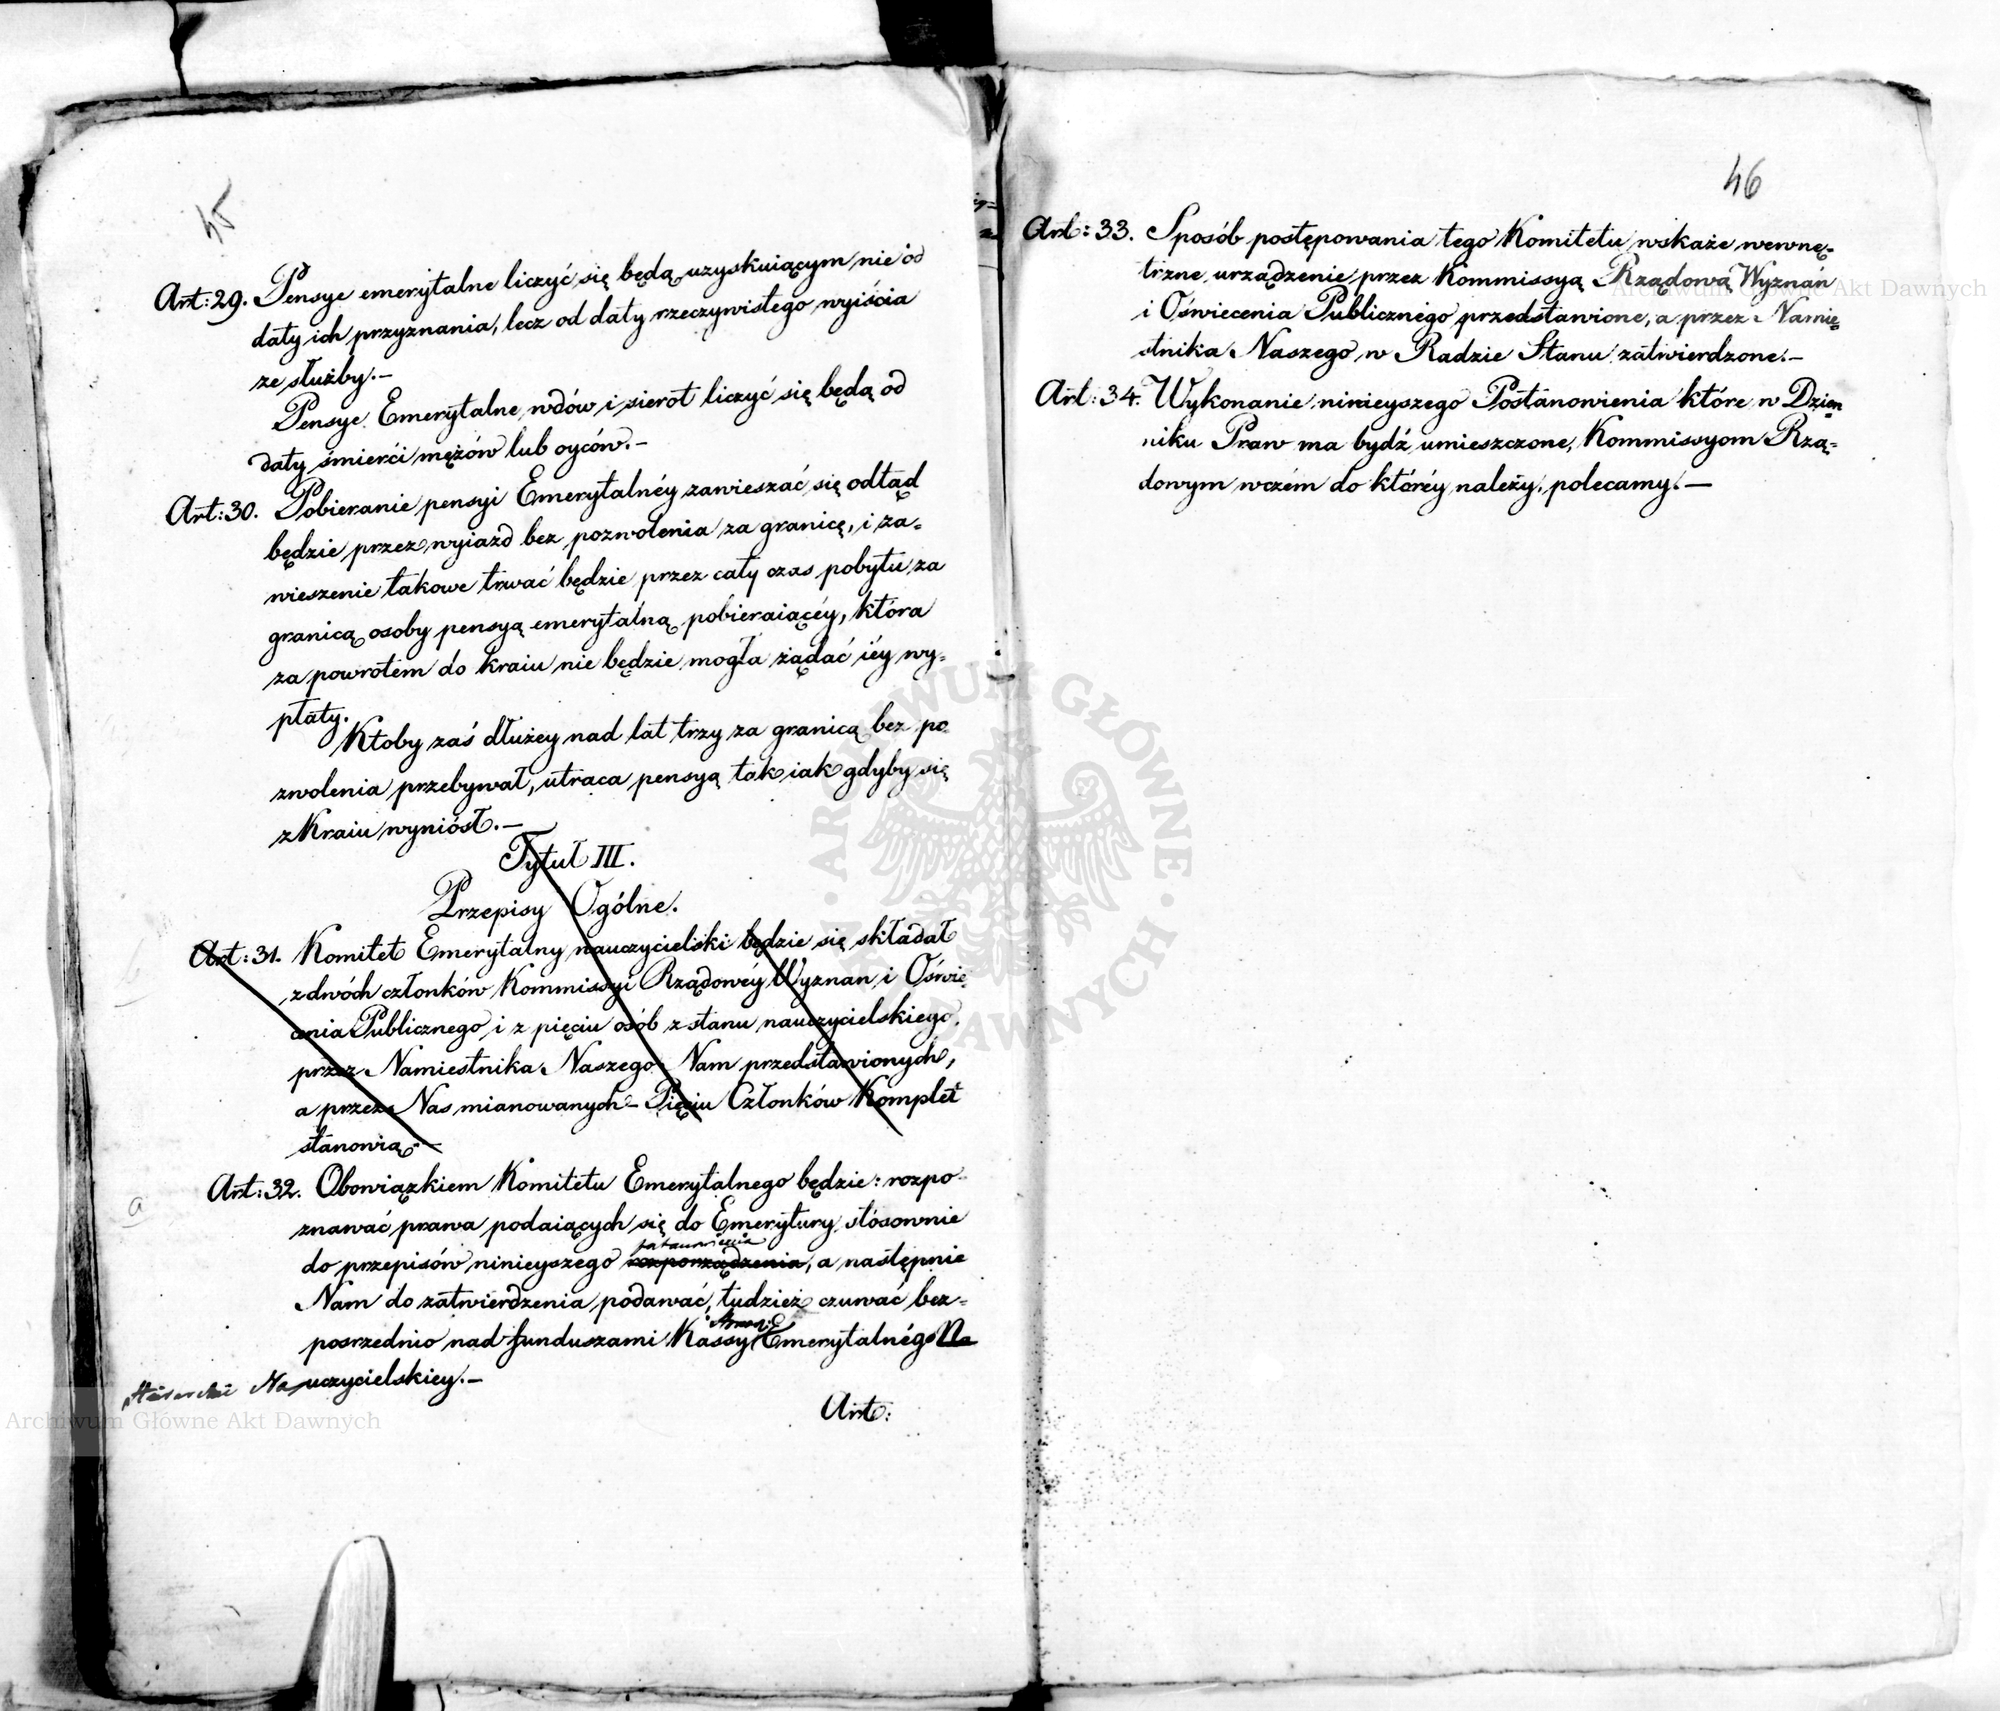 45
Art: 29. Pensye emerytalne liczyć się będą uzyskuiącym nie od
daty ich przyznania, lecz od daty rzeczywistego wyiścia
ze służby.—
Pensye Emerytalne wdów i sierot liczyć się będą od
daty śmierći mężów lub oyców.—
Art: 30. Pobieranie pensyi Emerytalnéy zawieszać się odtąd
będzie przez wyiazd bez pozwolenia za granicę, i za=
wieszenie takowe trwać będzie przez cały czas pobytu za
granicą osoby pensyą emerytalną pobieraiącéy, która
za powrotem do kraiu nie będzie mogła żądać iéy wy=
płaty.
Ktoby zaś dłużey nad lat trzy za granicą bez po
zwolenia przebywał, utraca pensyą tak iak gdyby się
z Kraiu wyniósł.—
Tytuł III.
Przepisy Ogólne.
Art: 31. Komitet Emerytalny nauczycielski będzie się składał
z dwóch członków Kommissyi Rządowéy Wyznan i Oświe
cenia Publicznego i z pięciu osób z stanu nauczycielskiego,
przez Namiestnika Naszego Nam przedstawionych,
a przez Nas mianowanych — Pięciu Członków Komplet
stanowią.—
a
Art: 32. Obowiązkiem Komitetu Emerytalnego będzie: rozpo-
znawać prawa podaiących się do Emerytury stósownie
postanowienia
do przepisów ninieyszego rozporządzenia, a następnie
Nam do zatwierdzenia podawać, tudzież czuwać bez=
posrzednio nad funduszami Kassy Emerytalnég Na
Na uczycielskiey.—
Art:
46
Art: 33. Sposób postępowania tego Komitetu wskaże wewnę=
trzne urządzenie przez Kommissyą Rządową Wyznań
i Oświecenia Publicznégo przedstawione, a przez Namie=
stnika Naszego w Radzie Stanu zatwierdzone.—
Art: 34. Wykonanie ninieyszego Postanowienia które w Dzien=
niku Praw ma bydź umieszczone, Kommissyom Rzą=
dowym wczém do któréy należy, polecamy.—
ARCHIWUM GŁÓWNE AKT DAWNYCH
Archiwum Główne Akt Dawnych
Archiwum Główne Akt Dawnych